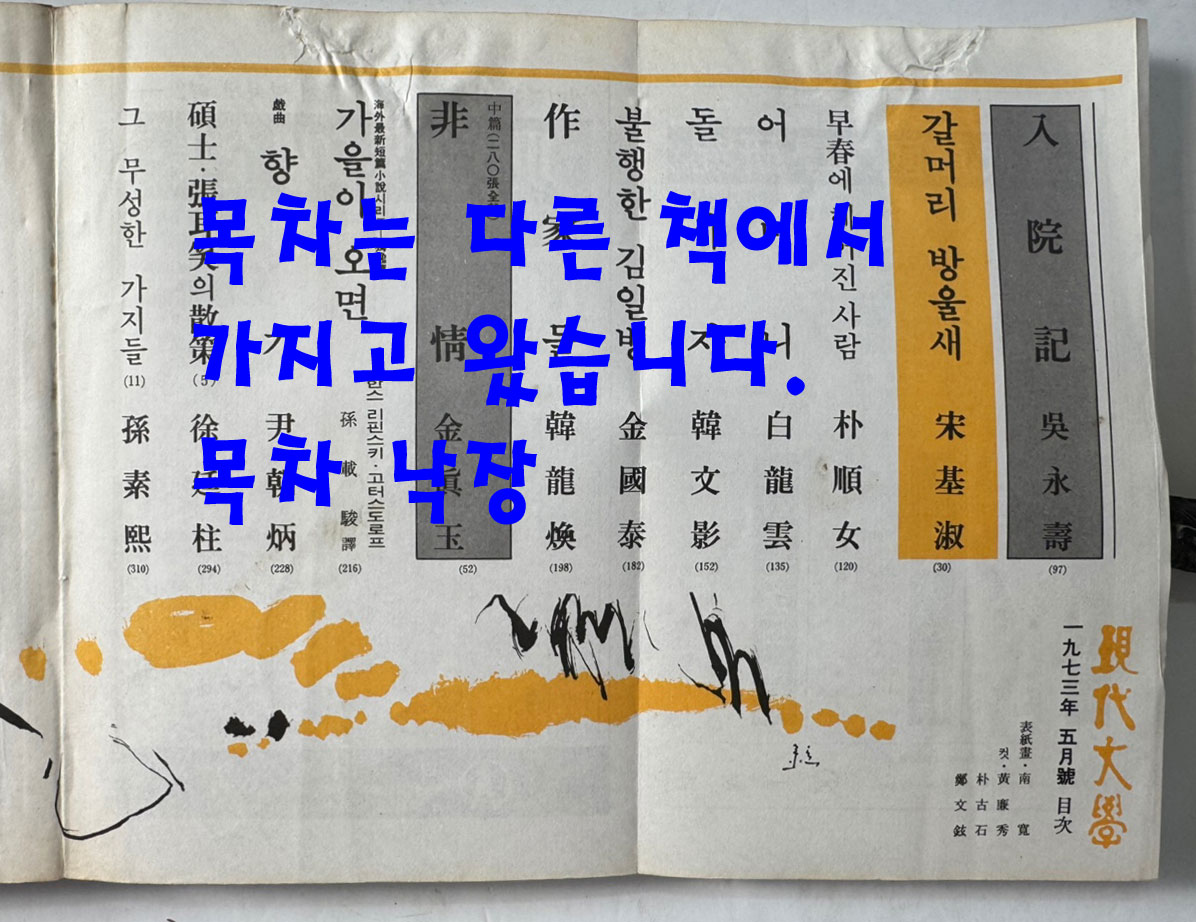 목차는 다른 책에서
가지고 왔습니다.
목차 낙장
現代文學
一九七三年 五月號 目次
表紙畫·南寬
컷·黃廉秀
朴古石
鄭文鉉
入院記 吳永壽
(97)
갈머리 방울새 宋基淑
(30)
早春에 사람 朴順女
(120)
어 니 白龍雲
(135)
돌 韓文影
(152)
불행한 김일병 金國泰
(182)
作家들 韓龍煥
(198)
中篇(二八〇張全
非情 金眞玉
(52)
海外最新短篇小說시리
한스 리핀스키·고터스도로프
가을이 오면 孫載駿譯
(216)
戲曲
향 尹朝炳
(228)
碩士·張耳笑의 散策 徐廷柱
(5)
(294)
그 무성한 가지들 孫素熙
(11)
(310)